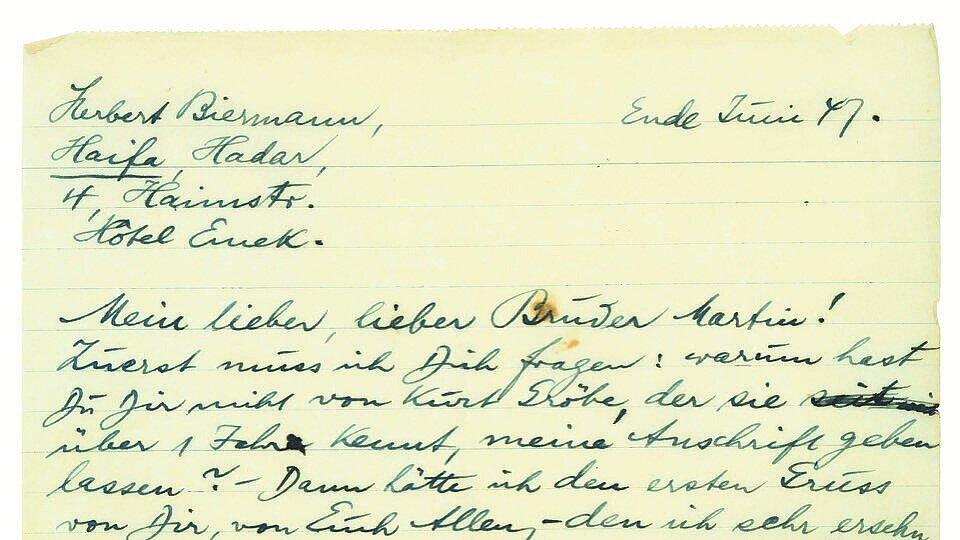 Herbert Biermann,
Ende Juni 47.
Haifa, Hadar,
4, Haimstr.
Hôtel Emek.
Mein lieber, lieber Bruder Martin!
Zuerst muss ich Dich fragen: warum hast
Du Dir nicht von Kurt Gröbe, der sie
über 1 Jahre kennt, meine Anschrift geben
lassen? – Dann hätte ich den ersten Gruss
von Dir, von Euch Allen, – den ich sehr ersehn